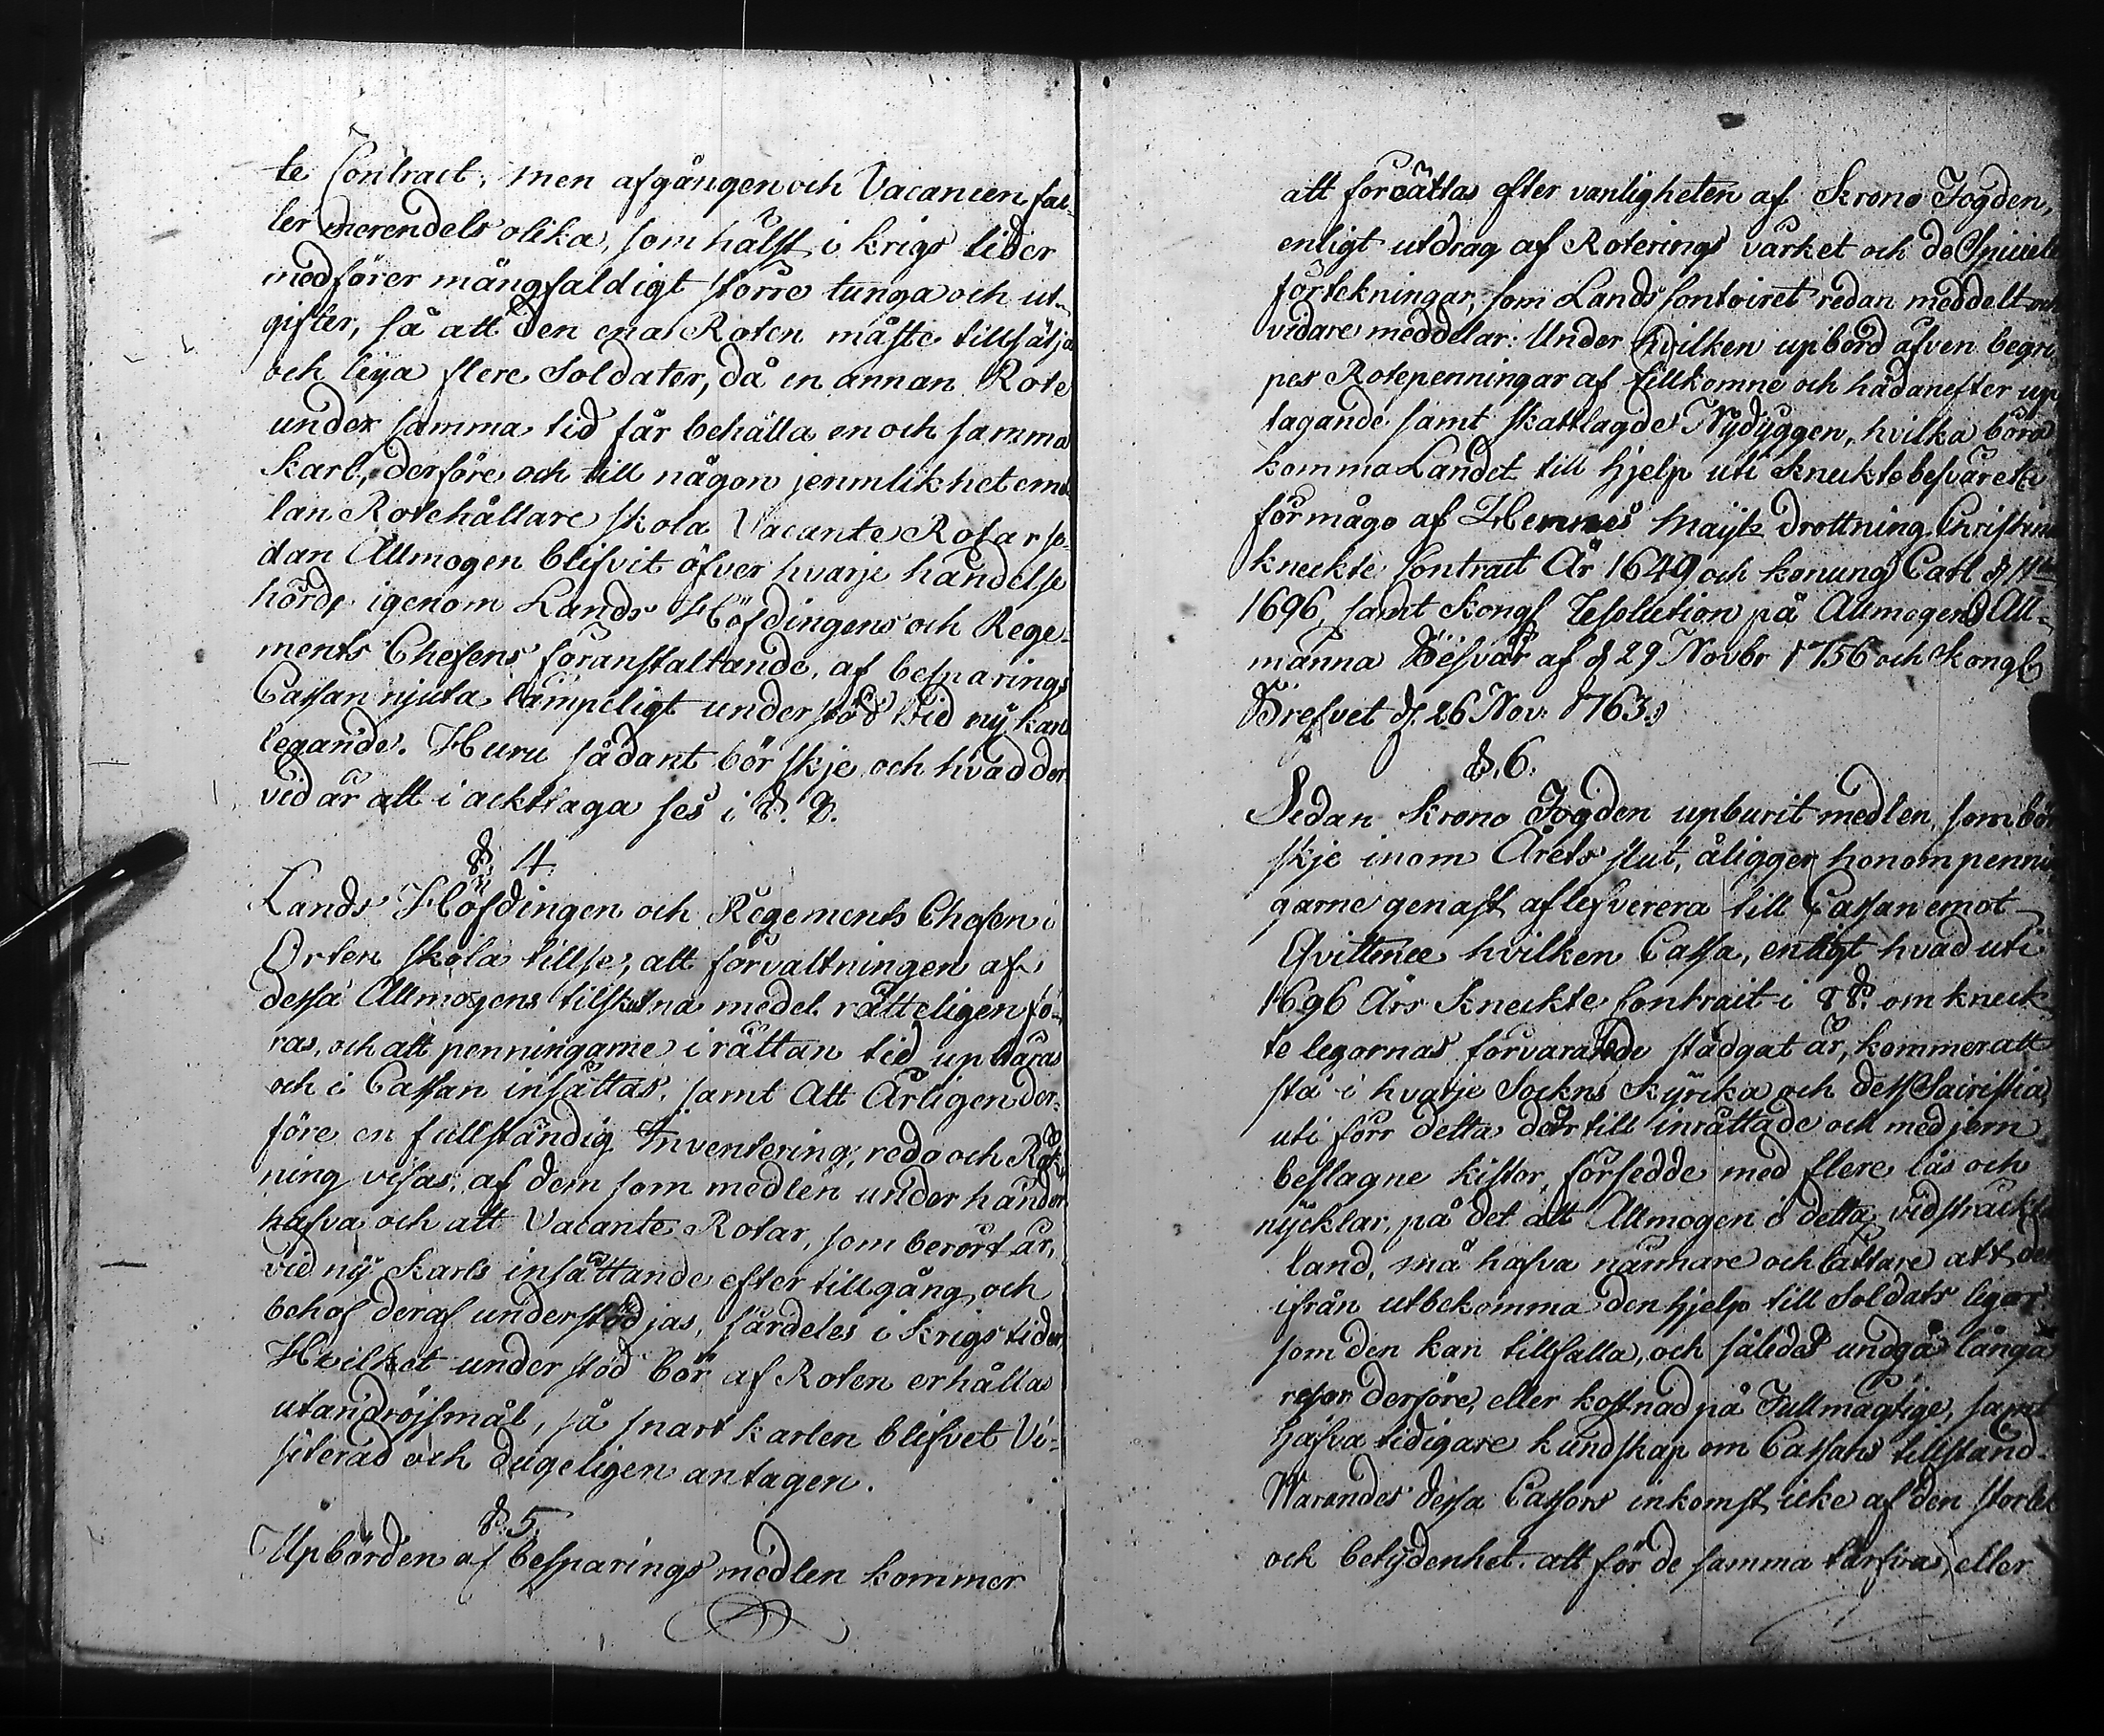 te Contract, men afgången och Vacancen fal-
ler merendels olika, som hälst i krigs tider
medförer mångfaldigt större tunga och ut-
gifter, så att den ena Roten måste tillsätja
och leja flere Soldater, då en annan Rote
under samma tid får behålla en och samma
Karl, derföre och till någon jemnlikhet emel
lan Rotehållare skola Vacante Rotar se-
dan Allmogen blifvit öfver hvarje händelse
hörde igenom Lands Höfdingens och Rege-
ments Chefens föranstaltande, af besparings
Cassan njuta lämpeligt understöd vid ny karls
legande. Huru sådant bör skje och hvad der
vid är att i ackttaga ses i §. 8.
§. 4.
Lands Höfdingen och Regements Chefen i
Orten skola tillse, att förvaltningen af
dessa Allmogens tilskutna medel rätteligen fö-
ras, och att penningarne i rättan tid upbäras
och i Cassan insättas, samt Att Årligen der-
före en fullständig Inventering, redo och Räk-
ning visas, af dem som medlen under händer
hafva och att Vacante Rotar, som berört är,
vid ny Karls insättande efter tillgång och
behof deraf understödjas, särdeles i krigs tider
Hvilket understöd bör af Roten erhållas
utan dröjsmål, så snart karlen blifvet Vi-
siterad och dugeligen antagen.
§. 5.
Upbörden af besparings medlen kommer
att försättas efter vanligheten af Krono Fogden,
enligt utdrag af Roterings värket och de Speciele
förtekningar, som Lands Contoiret redan meddelt och
vidare meddelar: Under hvilken upbörd äfven begri-
pes Rotepenningar af tillkomne och hädanefter up
tagande samt skattlagde Nybyggen, hvilka böra
komma Landet till hjelp uti Knecktebesväret i
förmågo af Hennes Maijts Drottning Christine
kneckte Contract År 1649 och konung Carl d 11te
1696, samt Kongl Resolution på Allmogens All-
männa Besvär af d 29 Novbr 1756 och Kongl
Brefvet d. 26 Nov. 1763.
§. 6.
Sedan Krono Fogden upburit medlen, som bör
skje inom Årets slut, åligger honom pennin
garne genast aflefverera till Cassan emot
Qvittence hvilken Cassa, enligt hvad uti
1696 Års Kneckte Contract i 8 §. om kneck-
te legornas förvarande städgat är, kommer att
stå i hvarje Sockns Kyrka och dess Sacristia,
uti förr detta der till inrättade och med jern
beslagne kistor, försedde med flere lås och
nycklar, på det att Allmogen i detta vidsträckte
land, må hafva närmare och lättare att der
ifrån utbekomma den hjelp till Soldats legor
som den kan tillfalla, och således undgå långa
resor derföre, eller kostnad på Fullmägtige, samt
hafva tidigare kundskap om Cassans tillstånd.
Warandes dessa Cassors inkomst icke af den storlek
och betydenhet, att för de samma tarfvas, eller